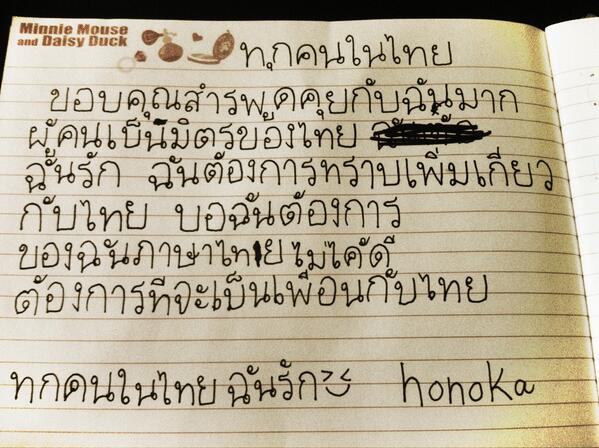 Minnie Mouse
and Daisy Duck
ทุกคนในไทย
ขอบคุณสำรพูดคุยกับฉันมาก
ผู้คนเป็นมิตรของไทย
ฉันรัก ฉันต้องการทราบเพิ่มเกียว
กับไทย บอฉันต้องการ
ของฉันภาษาไทย ไม่ได้ดี
ต้องการที่จะเป็นเพื่อนกับไทย
ทุกคนในไทย ฉันรัก honoka